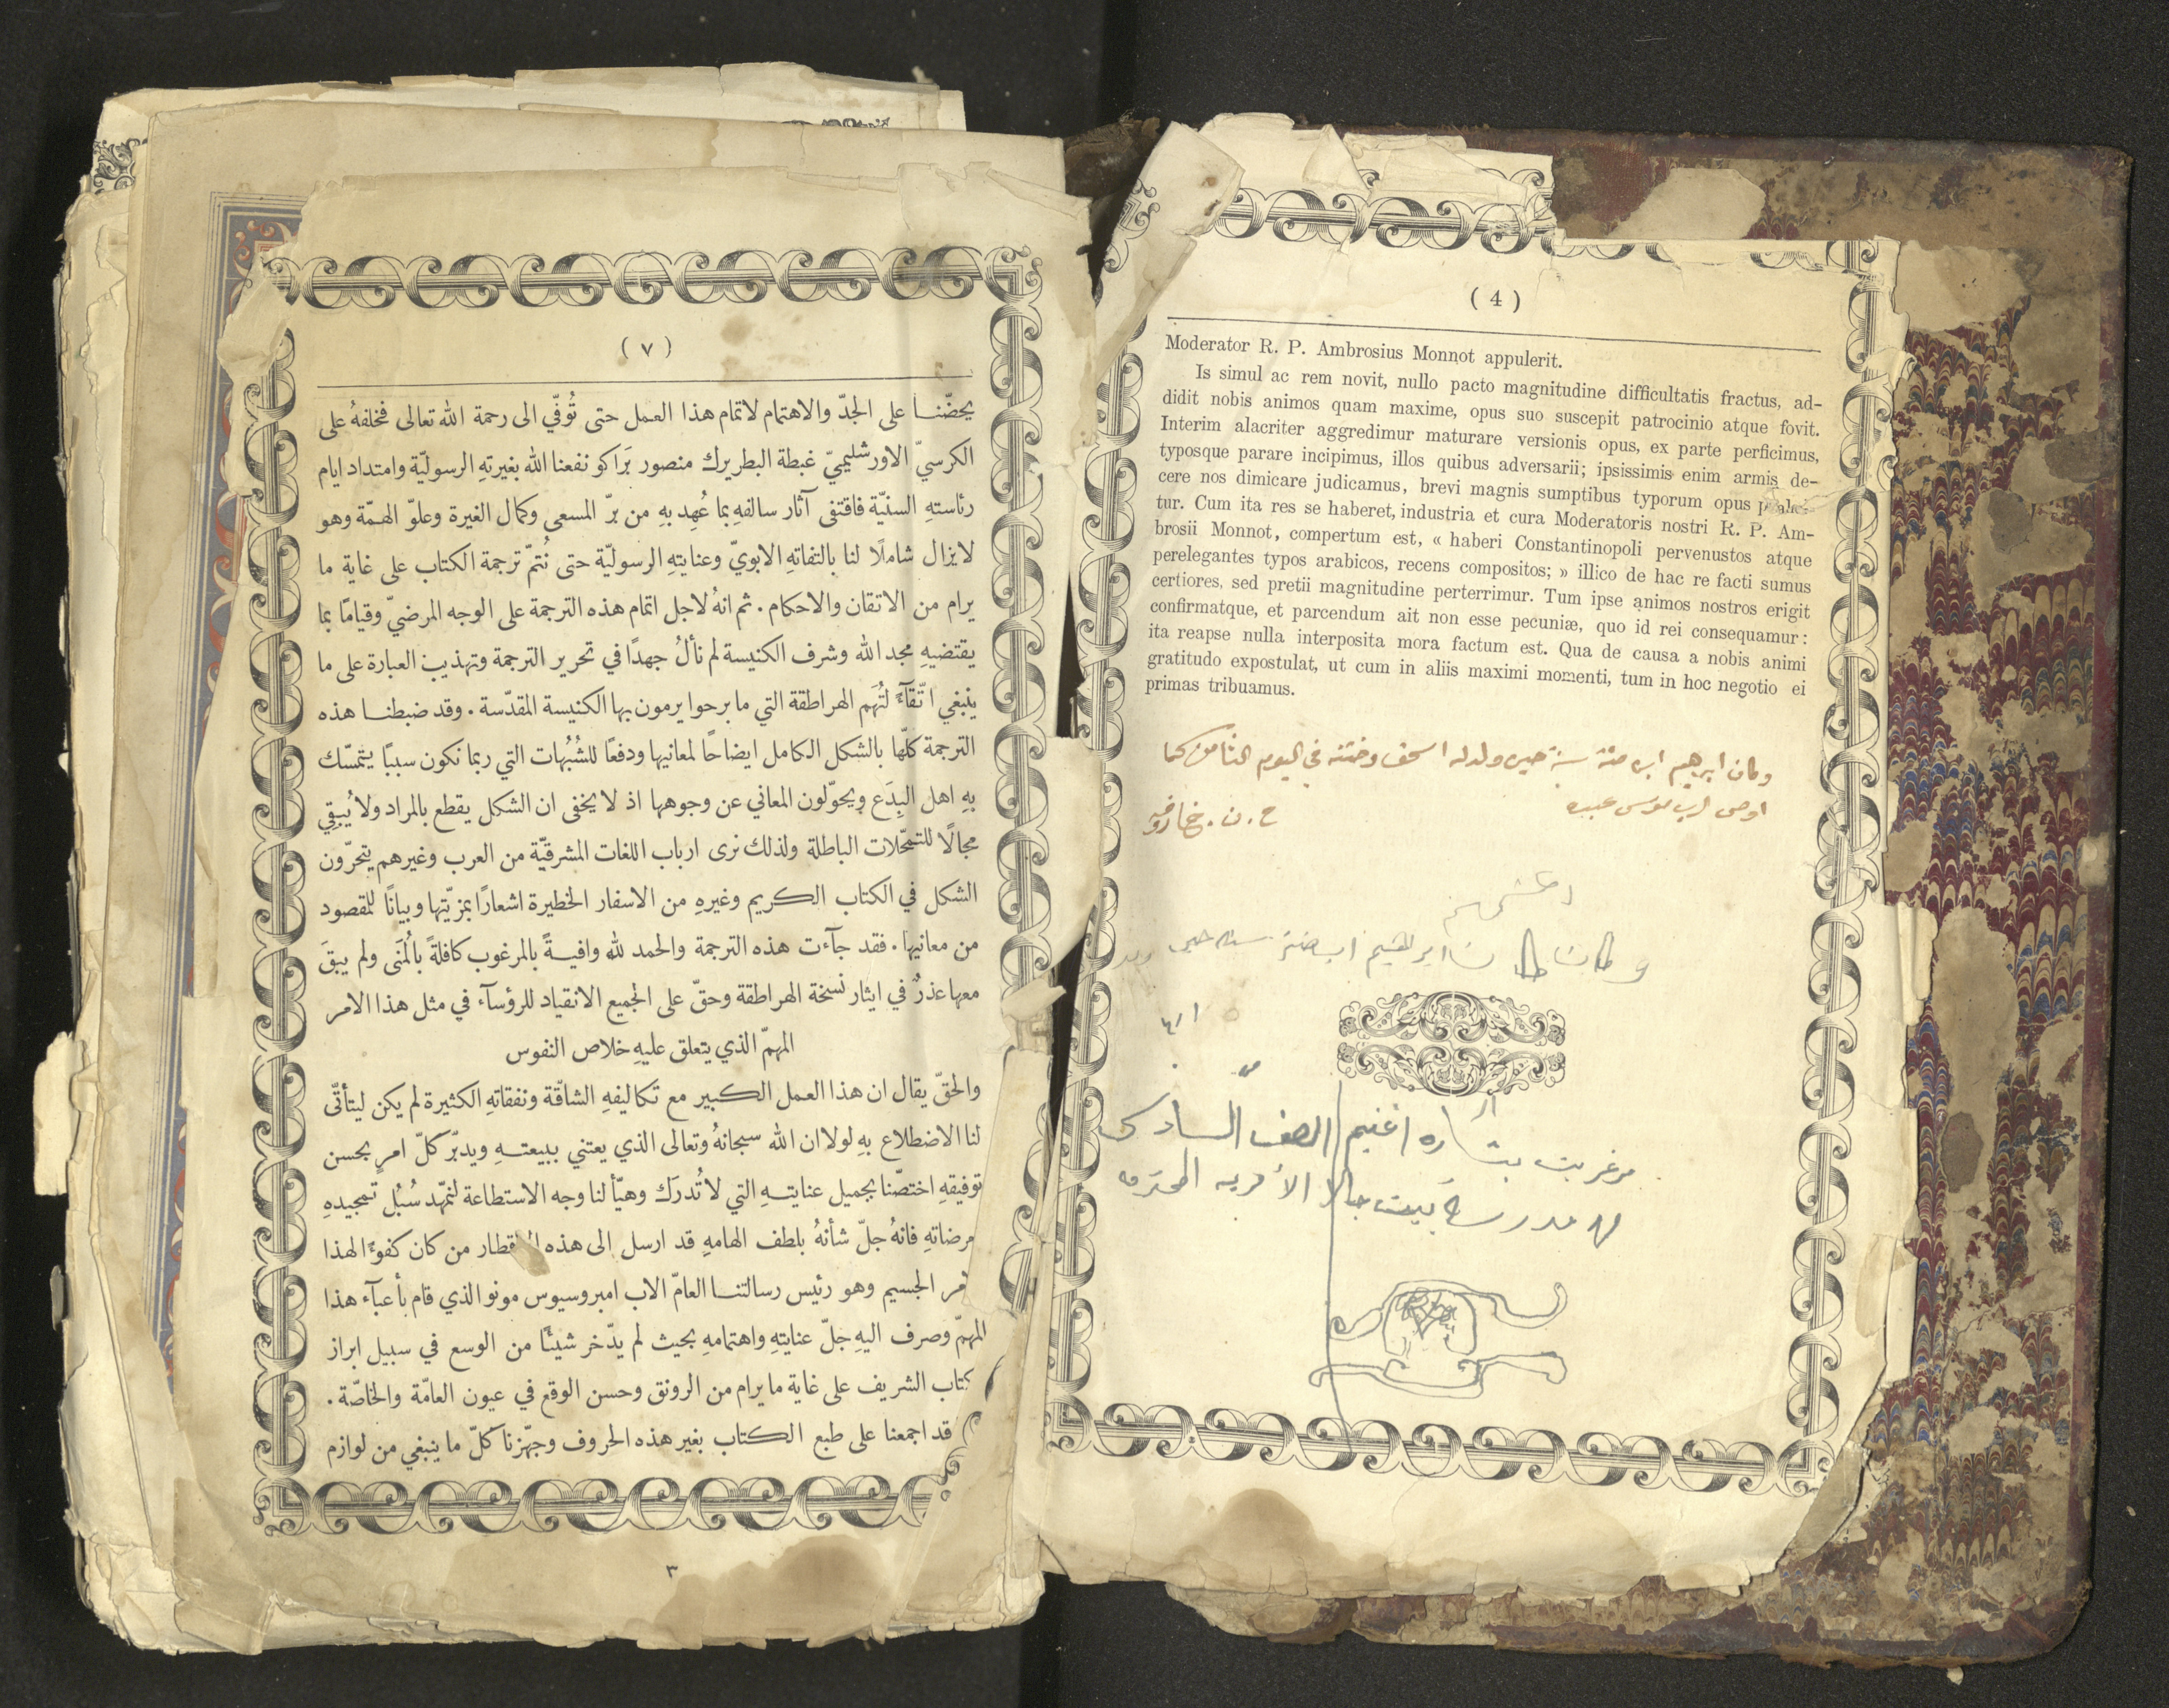 ( 4 )
Moderator R. P. Ambrosius Monnot appulerit.
Is simul ac rem novit, nullo pacto magnitudine difficultatis fractus, ad-
didit nobis animos quam maxime, opus suo suscepit patrocinio atque fovit.
Interim alacriter aggredimur maturare versionis opus, ex parte perficimus,
typosque parare incipimus, illos quibus adversarii; ipsissimis enim armis de-
cere nos dimicare judicamus, brevi magnis sumptibus typorum opus
tur. Cum ita res se haberet, industria et cura Moderatoris nostri R. P. Am-
brosii Monnot, compertum est, « haberi Constantinopoli pervenustos atque
perelegantes typos arabicos, recens compositos; » illico de hac re facti sumus
certiores, sed pretii magnitudine perterrimur. Tum ipse animos nostros erigit
confirmatque, et parcendum ait non esse pecuniæ, quo id rei consequamur:
ita reapse nulla interposita mora factum est. Qua de causa a nobis animi
gratitudo expostulat, ut cum in aliis maximi momenti, tum in hoc negotio ei
primas tribuamus.
وكان ابرهيم ابن مئة سنة حين ولد له اسحق وختنه في اليوم الثامن كما
اوصى الرب موسى عبده
ابراهيم ابن سنه حين
الصف السادس
مدرسة بيت جالا المحترمه
( ٧ )
يحضّنا على الجدّ والاهتمام لاتمام هذا العمل حتى تُوفّي الى رحمة الله تعالى فخلفهُ على
الكرسيّ الاورشليميّ غبطة البطريرك منصور بَراكو نفعنا الله بغيرتهِ الرسوليّة وامتداد ايام
رئاستهِ السنيّة فاقتفى آثار سالفهِ بما عُهِد بهِ من برّ المسعى وكمال الغيرة وعلوّ الهمّة وهو
لا يزال شاملًا لنا بالتفاتهِ الابويّ وعنايتهِ الرسوليّة حتى نُتمّ ترجمة الكتاب على غاية ما
يرام من الاتقان والاحكام . ثم انهُ لاجل اتمام هذه الترجمة على الوجه المرضيّ وقيامًا بما
يقتضيهِ مجد الله وشرف الكنيسة لم نألُ جهدًا في تحرير الترجمة وتهذيب العبارة على ما
ينبغي اتّقآءً لتُهَم الهراطقة التي ما برحوا يرمون بها الكنيسة المقدّسة . وقد ضبطنا هذه
الترجمة كلّها بالشكل الكامل ايضاحًا لمعانيها ودفعًا للشُبُهات التي ربما نكون سببًا يتمسّك
بهِ اهل البِدَع ويحوّلون المعاني عن وجوهها اذ لا يخفى ان الشكل يقطع بالمراد ولا يُبقِي
مجالًا للتمحّلات الباطلة ولذلك نرى ارباب اللغات المشرقيّة من العرب وغيرهم يتحرّون
الشكل في الكتاب الكريم وغيرهِ من الاسفار الخطيرة اشعارًا بمزيّتها وبيانًا للمقصود
من معانيها . فقد جآءت هذه الترجمة والحمد لله وافيةً بالمرغوب كافلةً بالمُنَى ولم يبقَ
معها عذرٌ في ايثار نسخة الهراطقة وحقّ على الجميع الانقياد للرؤسآء في مثل هذا الامر
المهمّ الذي يتعلق عليهِ خلاص النفوس
والحقّ يقال ان هذا العمل الكبير مع تكاليفهِ الشاقّة ونفقاتهِ الكثيرة لم يكن ليتأتّى
لنا الاضطلاع بهِ لولا ان الله سبحانهُ وتعالى الذي يعتني ببيعتهِ ويدبّر كلّ امرٍ بحسن
توفيقهِ اختصّنا بجميل عنايتهِ التي لا تُدرَك وهيّأ لنا وجه الاستطاعة لنمهّد سُبُل تمجيدهِ
مرضاتهِ فانهُ جلّ شأنهُ بلطف الهامهِ قد ارسل الى هذه الاقطار من كان كفوءًا لهذا
مر الجسيم وهو رئيس رسالتنا العامّ الاب امبروسيوس مونو الذي قام بأعبآء هذا
المهمّ وصرف اليهِ جلّ عنايتهِ واهتمامهِ بحيث لم يدّخر شيئًا من الوسع في سبيل ابراز
كتاب الشريف على غاية ما يرام من الرونق وحسن الوقع في عيون العامّة والخاصّة .
قد اجمعنا على طبع الكتاب بغير هذه الحروف وجهّزنا كلّ ما ينبغي من لوازم
٣